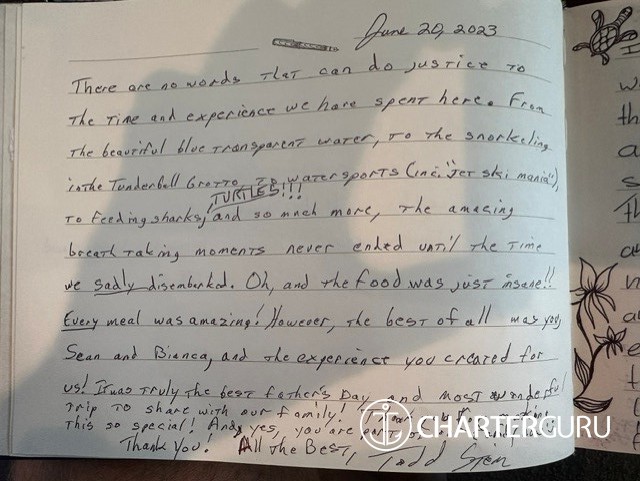 June 20, 2023
There are no words that can do justice to
the time and experience we have spent here. From
the beautiful blue transparent water, to the snorkeling
in the Tunderball Grotto, to watersports (inc. "jet ski mania"),
TURTLES!!!
to feeding sharks, and so much more, the amazing
breath taking moments never ended until the time
we sadly disembarked. Oh, and the food was just insane!!
Every meal was amazing! However, the best of all was you,
Sean and Bianca, and the experience you created for
us! It was truly the best Father's Day, and most wonderful
trip to share with our family! Thank
this so special! And, yes, you are part of
Thank you! All the Best, Todd Stern
CHARTERGURU